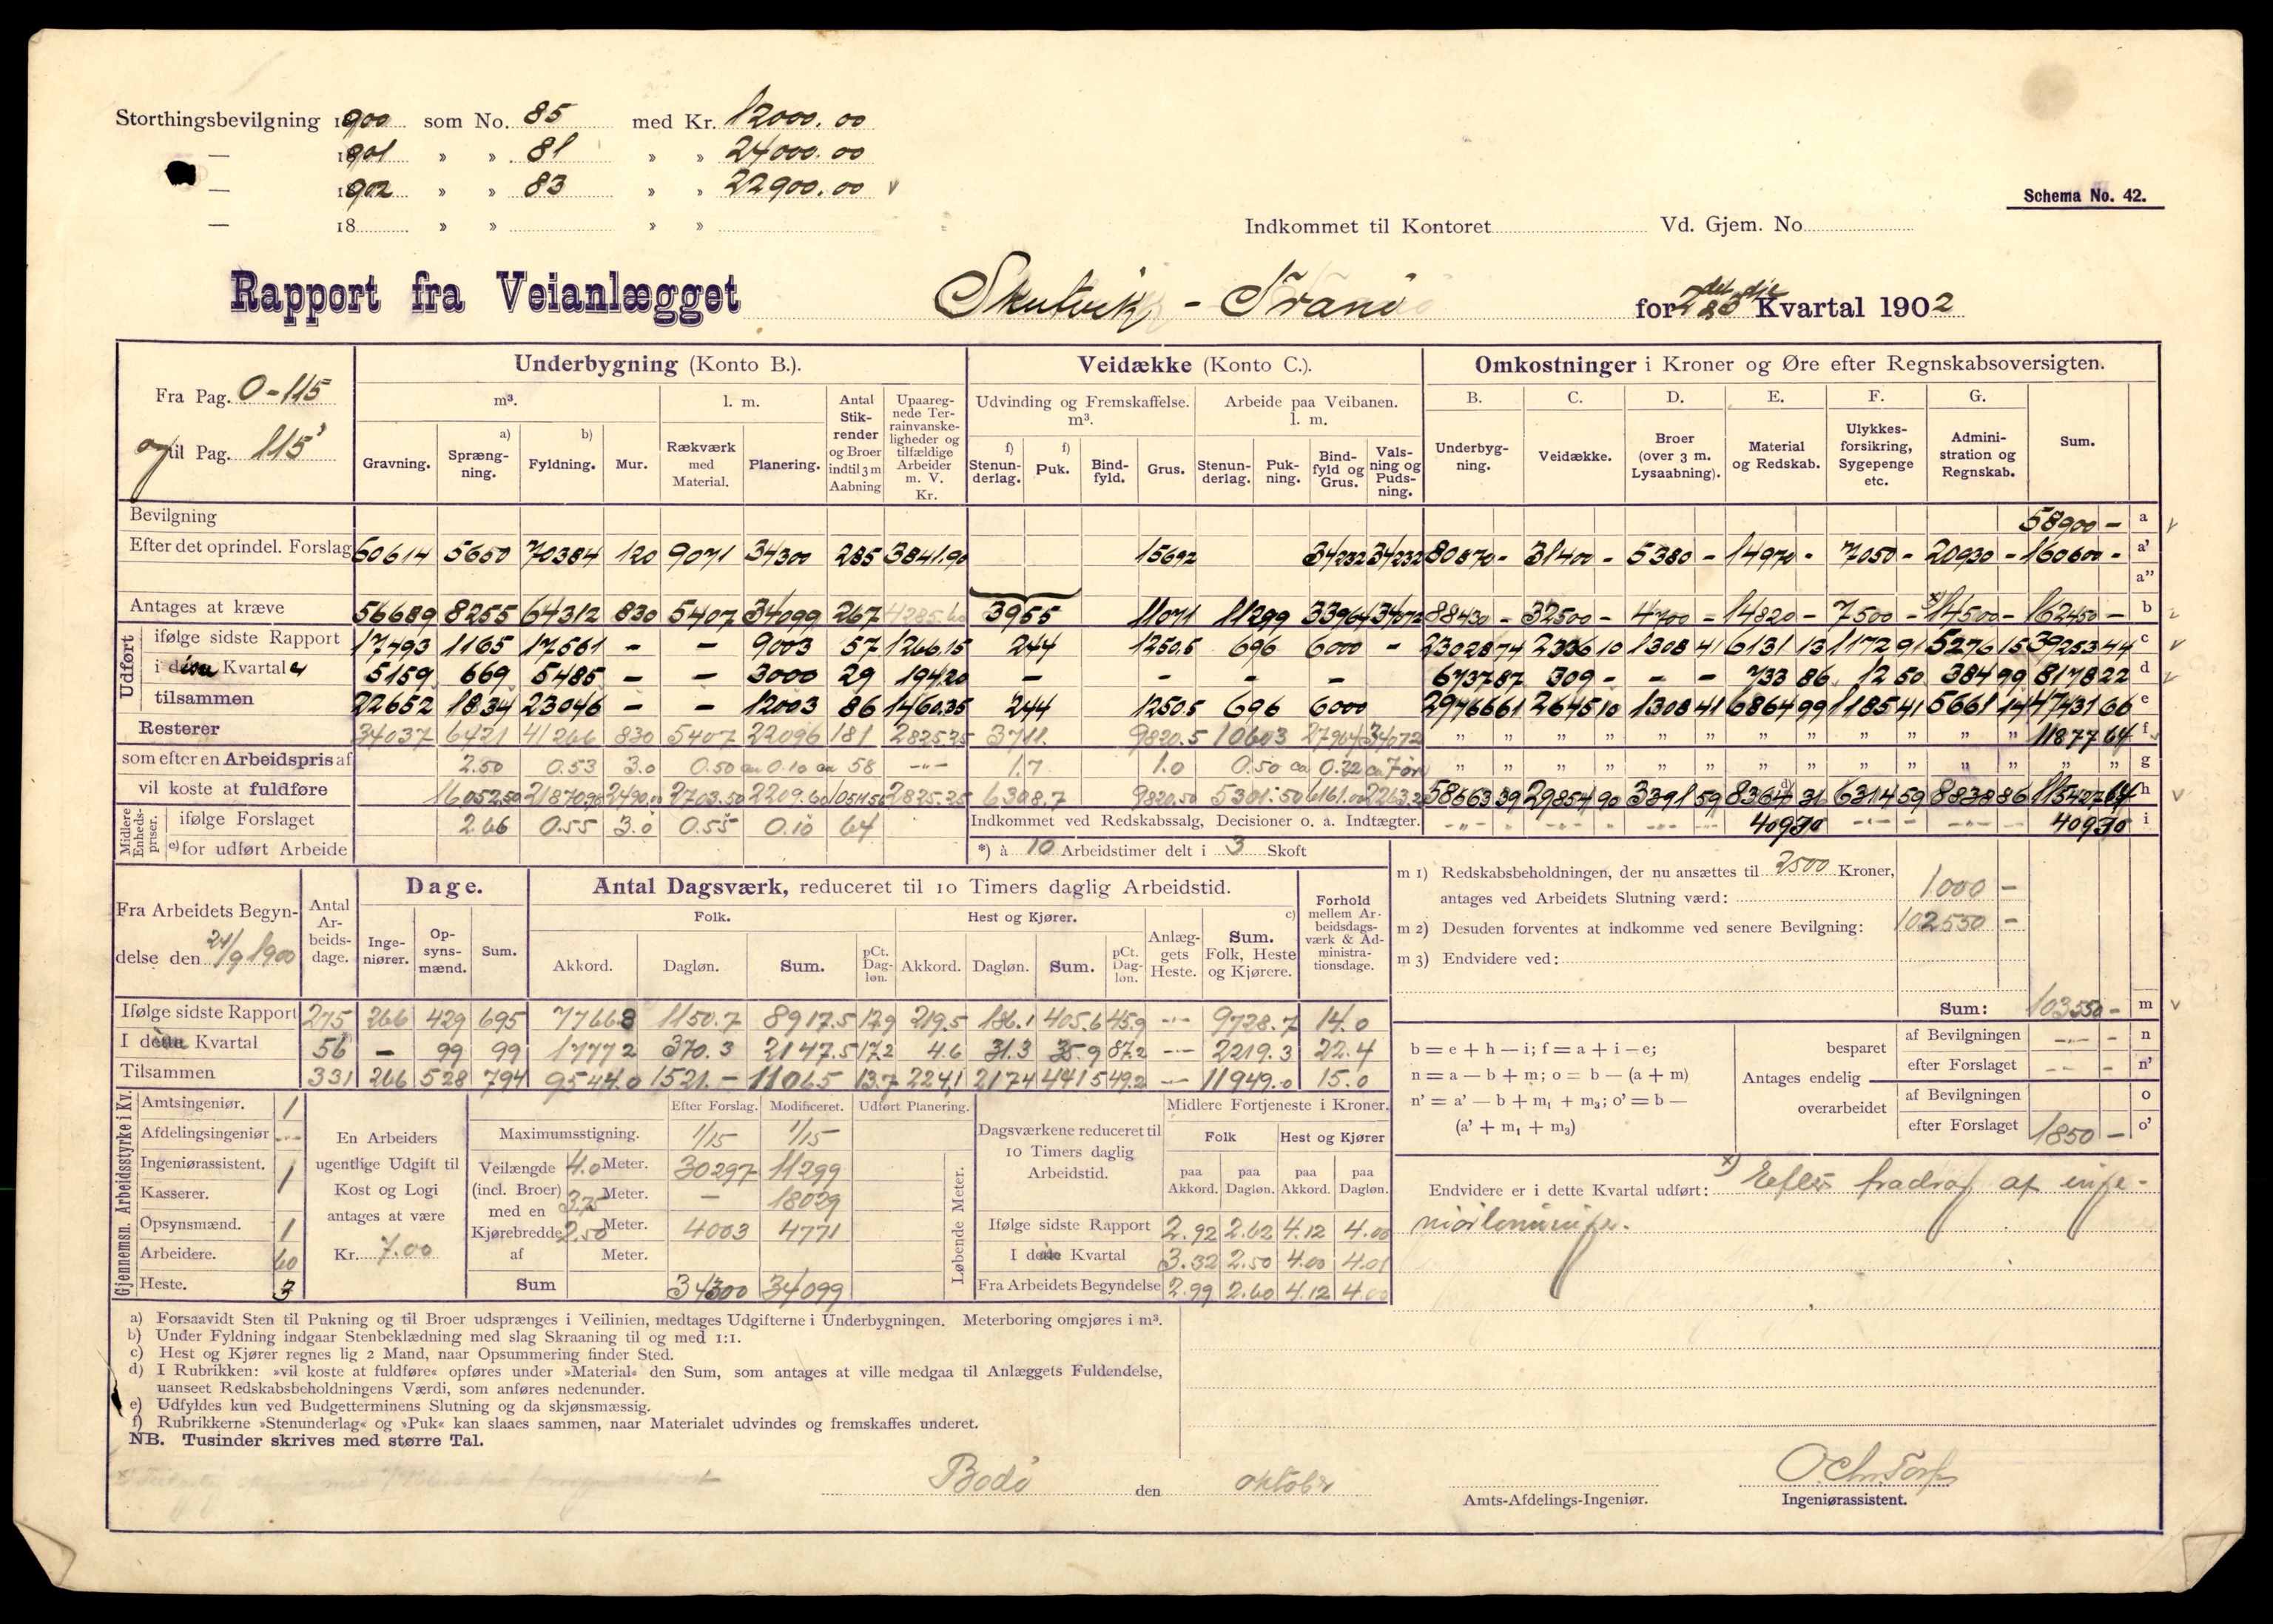 Storthingsbevilgning 1900 som No. 85 med Kr. 12000.00
— 1901 » » 81 » » 24000.00
— 1902 » » 83 » » 22900.00
— 18 » » » »
Schema No. 42.
Indkommet til Kontoret Vd. Gjem. No
Rapport fra Veianlægget Skutvik - Tranö for 2det & 3dje Kvartal 1902
Fra Pag. 0-115
og til Pag. 115'
Underbygning (Konto B.). Veidække (Konto C.). Omkostninger i Kroner og Øre efter Regnskabsoversigten.
m³. l. m. Antal Stikrender og Broer indtil 3 m Aabning
Upaaregnede Terrainvanskeligheder og tilfældige Arbeider m. V. Kr.
Udvinding og Fremskaffelse. m³. Arbeide paa Veibanen. l. m.
B. C. D. E. F. G. Sum.
Gravning. a) Sprængning. b) Fyldning. Mur. Rækværk med Material. Planering.
f) Stenunderlag. f) Puk. Bindfyld. Grus. Stenunderlag. Pukning. Bindfyld og Grus. Valsning og Pudsning.
Underbygning. Veidække. Broer (over 3 m. Lysaabning). Material og Redskab. Ulykkesforsikring, Sygepenge etc. Administration og Regnskab.
Bevilgning 58900 — a
Efter det oprindel. Forslag 60614 5650 70384 120 9071 34300 285 3841.90 15692 34232 34232 80870 - 31400 - 5380 - 14970 - 7050 - 20930 - 160600 - a'
a''
Antages at kræve 56689 8255 64312 830 5407 34099 267 4285.60 3955 11071 11299 33964 34072 88430 - 32500 - 4700 - 14820 - 7500 - 14500 - 162450 - b
Udført
ifølge sidste Rapport 17493 1165 17561 - - 9003 57 1266.15 244 1250.5 696 6000 - 23028 74 2336 10 1308 41 6131 13 1172 91 5276 15 39253 44 c
i disse Kvartaler 5159 669 5485 - - 3000 29 194.20 - - - - 6437 87 309 - - - 733 86 12 50 384 99 8178 22 d
tilsammen 22652 1834 23046 - - 12003 86 1460.35 244 1250.5 696 6000 29466 61 2645 10 1308 41 6864 99 1185 41 5661 14 47431 66 e
Resterer 34037 6421 41266 830 5407 22096 181 2825.25 3711. 9820.5 10603 27964 34072 " " " " " " " " " " " " 11877 64 f
som efter en Arbeidspris af 2.50 0.53 3.0 0.50 ca 0.10 ca 58 -"- 1.7 1.0 0.50 ca 0.22 ca 7 öre " " " " " " " " " " " " " " g
vil koste at fuldføre 16052.50 21870.98 2490.00 2703.50 2209.60 10511.50 2825.25 6308.7 9820.50 5301.50 6161.00 2263.2 58663 39 29854 90 3391 59 d) 8364 31 6314 59 8838 86 115427 64 h
Midlere Enhedspriser.
ifølge Forslaget 2.66 0.55 3.0 0.55 0.10 64 Indkommet ved Redskabssalg, Decisioner o. a. Indtægter. 409 30 409 30 i
e) for udført Arbeide *) à 10 Arbeidstimer delt i 3 Skoft
m 1) Redskabsbeholdningen, der nu ansættes til 2500 Kroner,
antages ved Arbeidets Slutning værd: 1000 —
m 2) Desuden forventes at indkomme ved senere Bevilgning: 102550 —
m 3) Endvidere ved:
Sum: 103550 - m
Fra Arbeidets Begyndelse den 24/9 1900
Antal Arbeidsdage. Dage. Antal Dagsværk, reduceret til 10 Timers daglig Arbeidstid. Forhold mellem Arbeidsdagsværk & Administrationsdage.
Folk. Hest og Kjører.
Ingeniører. Opsynsmænd. Sum. Akkord. Dagløn. Sum. pCt. Dagløn. Akkord. Dagløn. Sum. pCt. Dagløn. Anlæggets Heste. c) Sum. Folk, Heste og Kjørere.
Ifølge sidste Rapport 275 266 429 695 7766.8 1150.7 8917.5 12.9 219.5 186.1 405.6 45.9 -"- 9728.7 14.0
I dette Kvartal 56 - 99 99 1777 2 370.3 2147.5 17.2 4.6 31.3 35.9 87.2 -"- 2219.3 22.4
Tilsammen 331 266 528 794 9544.0 1521.- 11065 13.7 224.1 217 4 441 5 49.2 -"- 11949.0 15.0
b = e + h — i; f = a + i — e;
n = a — b + m; o = b — (a + m)
n' = a' — b + m₁ + m₃; o' = b —
(a' + m₁ + m₃)
Antages endelig
besparet af Bevilgningen n
efter Forslaget n'
overarbeidet af Bevilgningen o
efter Forslaget 1850 - o'
Gjennemsn. Arbeidsstyrke i Kv.
Amtsingeniør. 1
Afdelingsingeniør -"-
Ingeniørassistent. 1
Kasserer.
Opsynsmænd. 1
Arbeidere. 60
Heste. 3
En Arbeiders ugentlige Udgift til Kost og Logi antages at være
Kr. 7.00
Efter Forslag. Modificeret. Udført Planering.
Maximumsstigning. 1/15 1/15
Veilængde (incl. Broer) med en Kjørebredde af
4.0 Meter. 30297 11299
3.75 Meter. — 18029
2.50 Meter. 4003 4771
Meter.
Sum 34300 34099
Løbende Meter.
Dagsværkene reduceret til 10 Timers daglig Arbeidstid.
Midlere Fortjeneste i Kroner.
Folk Hest og Kjører
paa Akkord. paa Dagløn. paa Akkord. paa Dagløn.
Ifølge sidste Rapport 2.92 2.62 4.12 4.00
I dette Kvartal 3.32 2.50 4.00 4.01
Fra Arbeidets Begyndelse 2.99 2.60 4.12 4.00
Endvidere er i dette Kvartal udført: x) Efter fradrag af inge-
niörlönninger.
a) Forsaavidt Sten til Pukning og til Broer udsprænges i Veilinien, medtages Udgifterne i Underbygningen. Meterboring omgjøres i m³.
b) Under Fyldning indgaar Stenbeklædning med slag Skraaning til og med 1:1.
c) Hest og Kjører regnes lig 2 Mand, naar Opsummering finder Sted.
d) I Rubrikken: »vil koste at fuldføre« opføres under »Material« den Sum, som antages at ville medgaa til Anlæggets Fuldendelse,
uanseet Redskabsbeholdningens Værdi, som anføres nedenunder.
e) Udfyldes kun ved Budgetterminens Slutning og da skjønsmæssig.
f) Rubrikkerne »Stenunderlag« og »Puk« kan slaaes sammen, naar Materialet udvindes og fremskaffes underet.
NB. Tusinder skrives med større Tal.
Bodö den oktober
Amts-Afdelings-Ingeniør.
O. Chr. Torp
Ingeniørassistent.